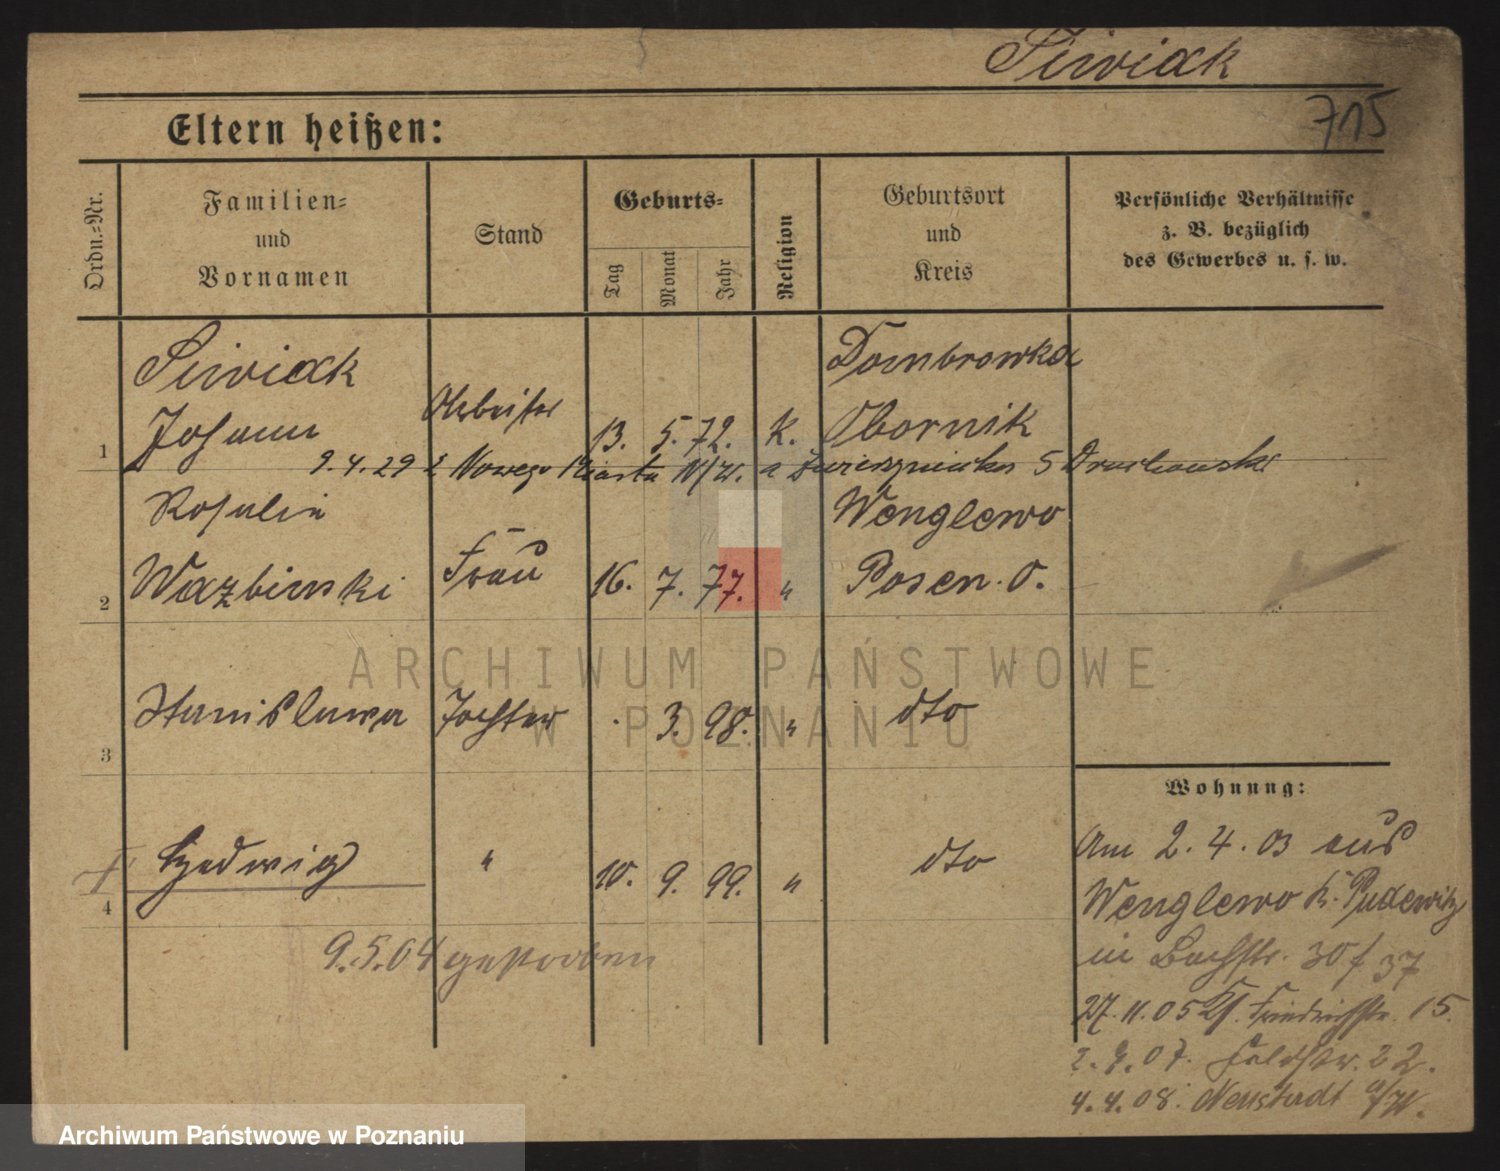 Siwiak
715
Eltern heißen:
Ordn.-Nr.
Familien-
und
Vornamen
Stand
Geburts-
Tag
Monat
Jahr
Religion
Geburtsort
und
Kreis
Persönliche Verhältnisse
z. B. bezüglich
des Gewerbes u. s. w.
Siwiak
Johann
Arbeiter
1
13. 5. 72. K.
Dombrowka
Obornik
9.4.29 z Nowego Miasta N/W. a 5
Rosalie
Wazbinski
Frau
2
16. 7. 77. "
Wenglewo
Posen. O.
ARCHIWUM PAŃSTWOWE
W POZNANIU
3
Stanislawa Tochter . 3. 98. " dto
4
Hedwig " 10. 9. 99. " dto
9.5.04 gestorben
Wohnung:
Am 2.4.03 aus
Wenglewo K. Pudewitz
in Bachstr. 30 f 37
27.11.05 Friedrichstr. 15.
2.9.07. Feldstr. 22.
4.4.08. Neustadt a/W.
Archiwum Państwowe w Poznaniu